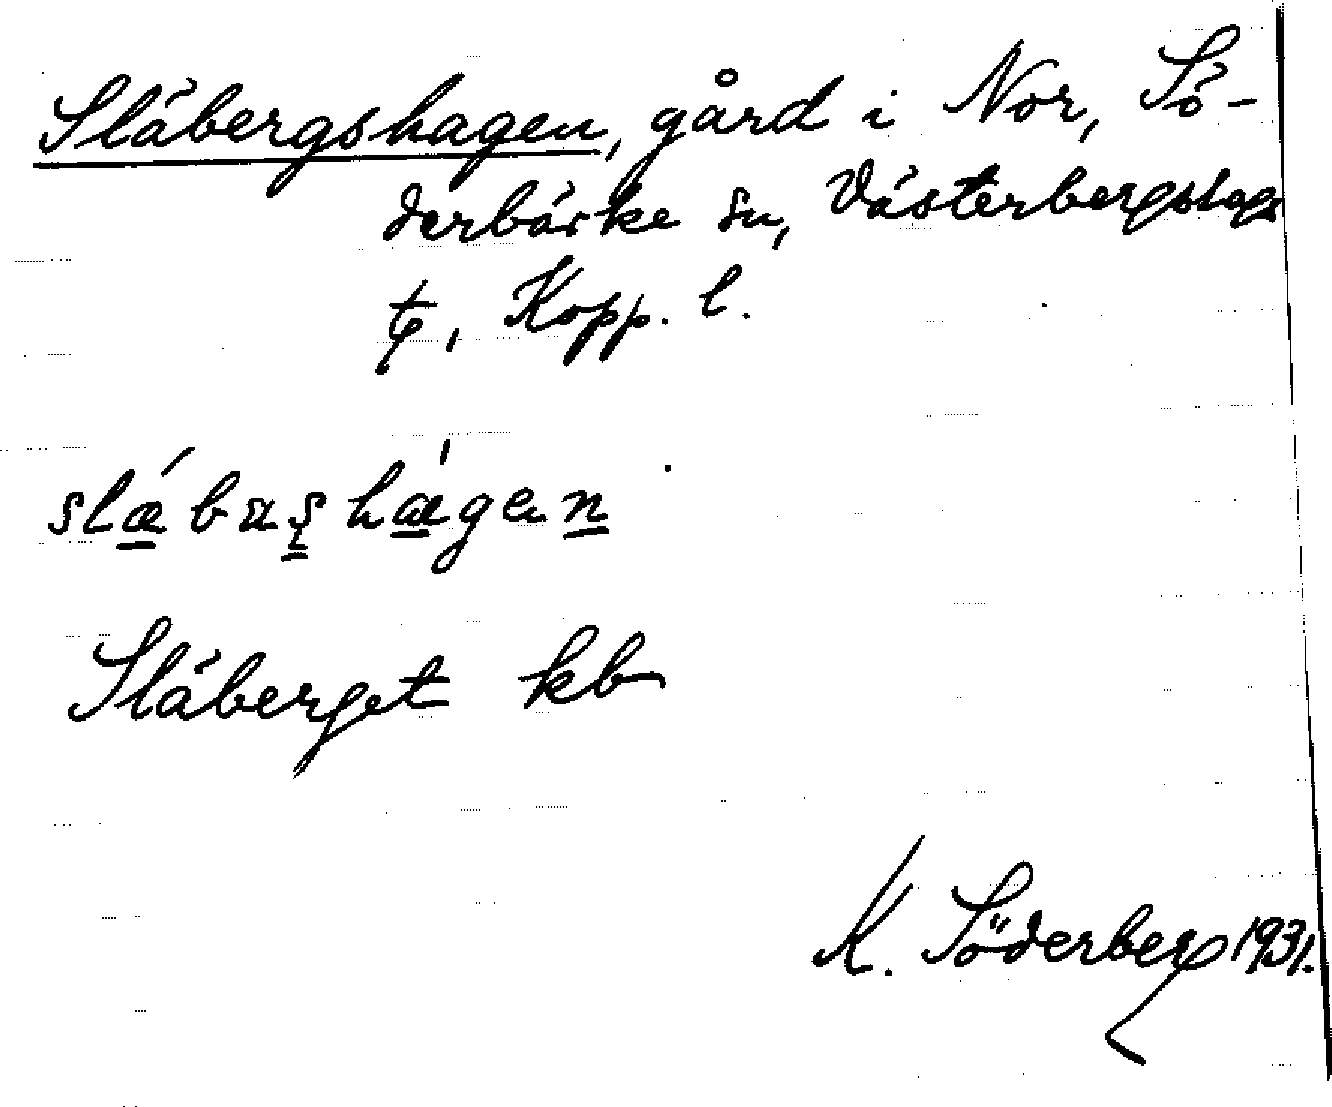 Släbergshagen, gård i Nor, Sö-
derbärke sn, Västerbergslags
t, Kopp. l.
slæbaʂhagen
Släberget kb
K. Söderberg 1931.